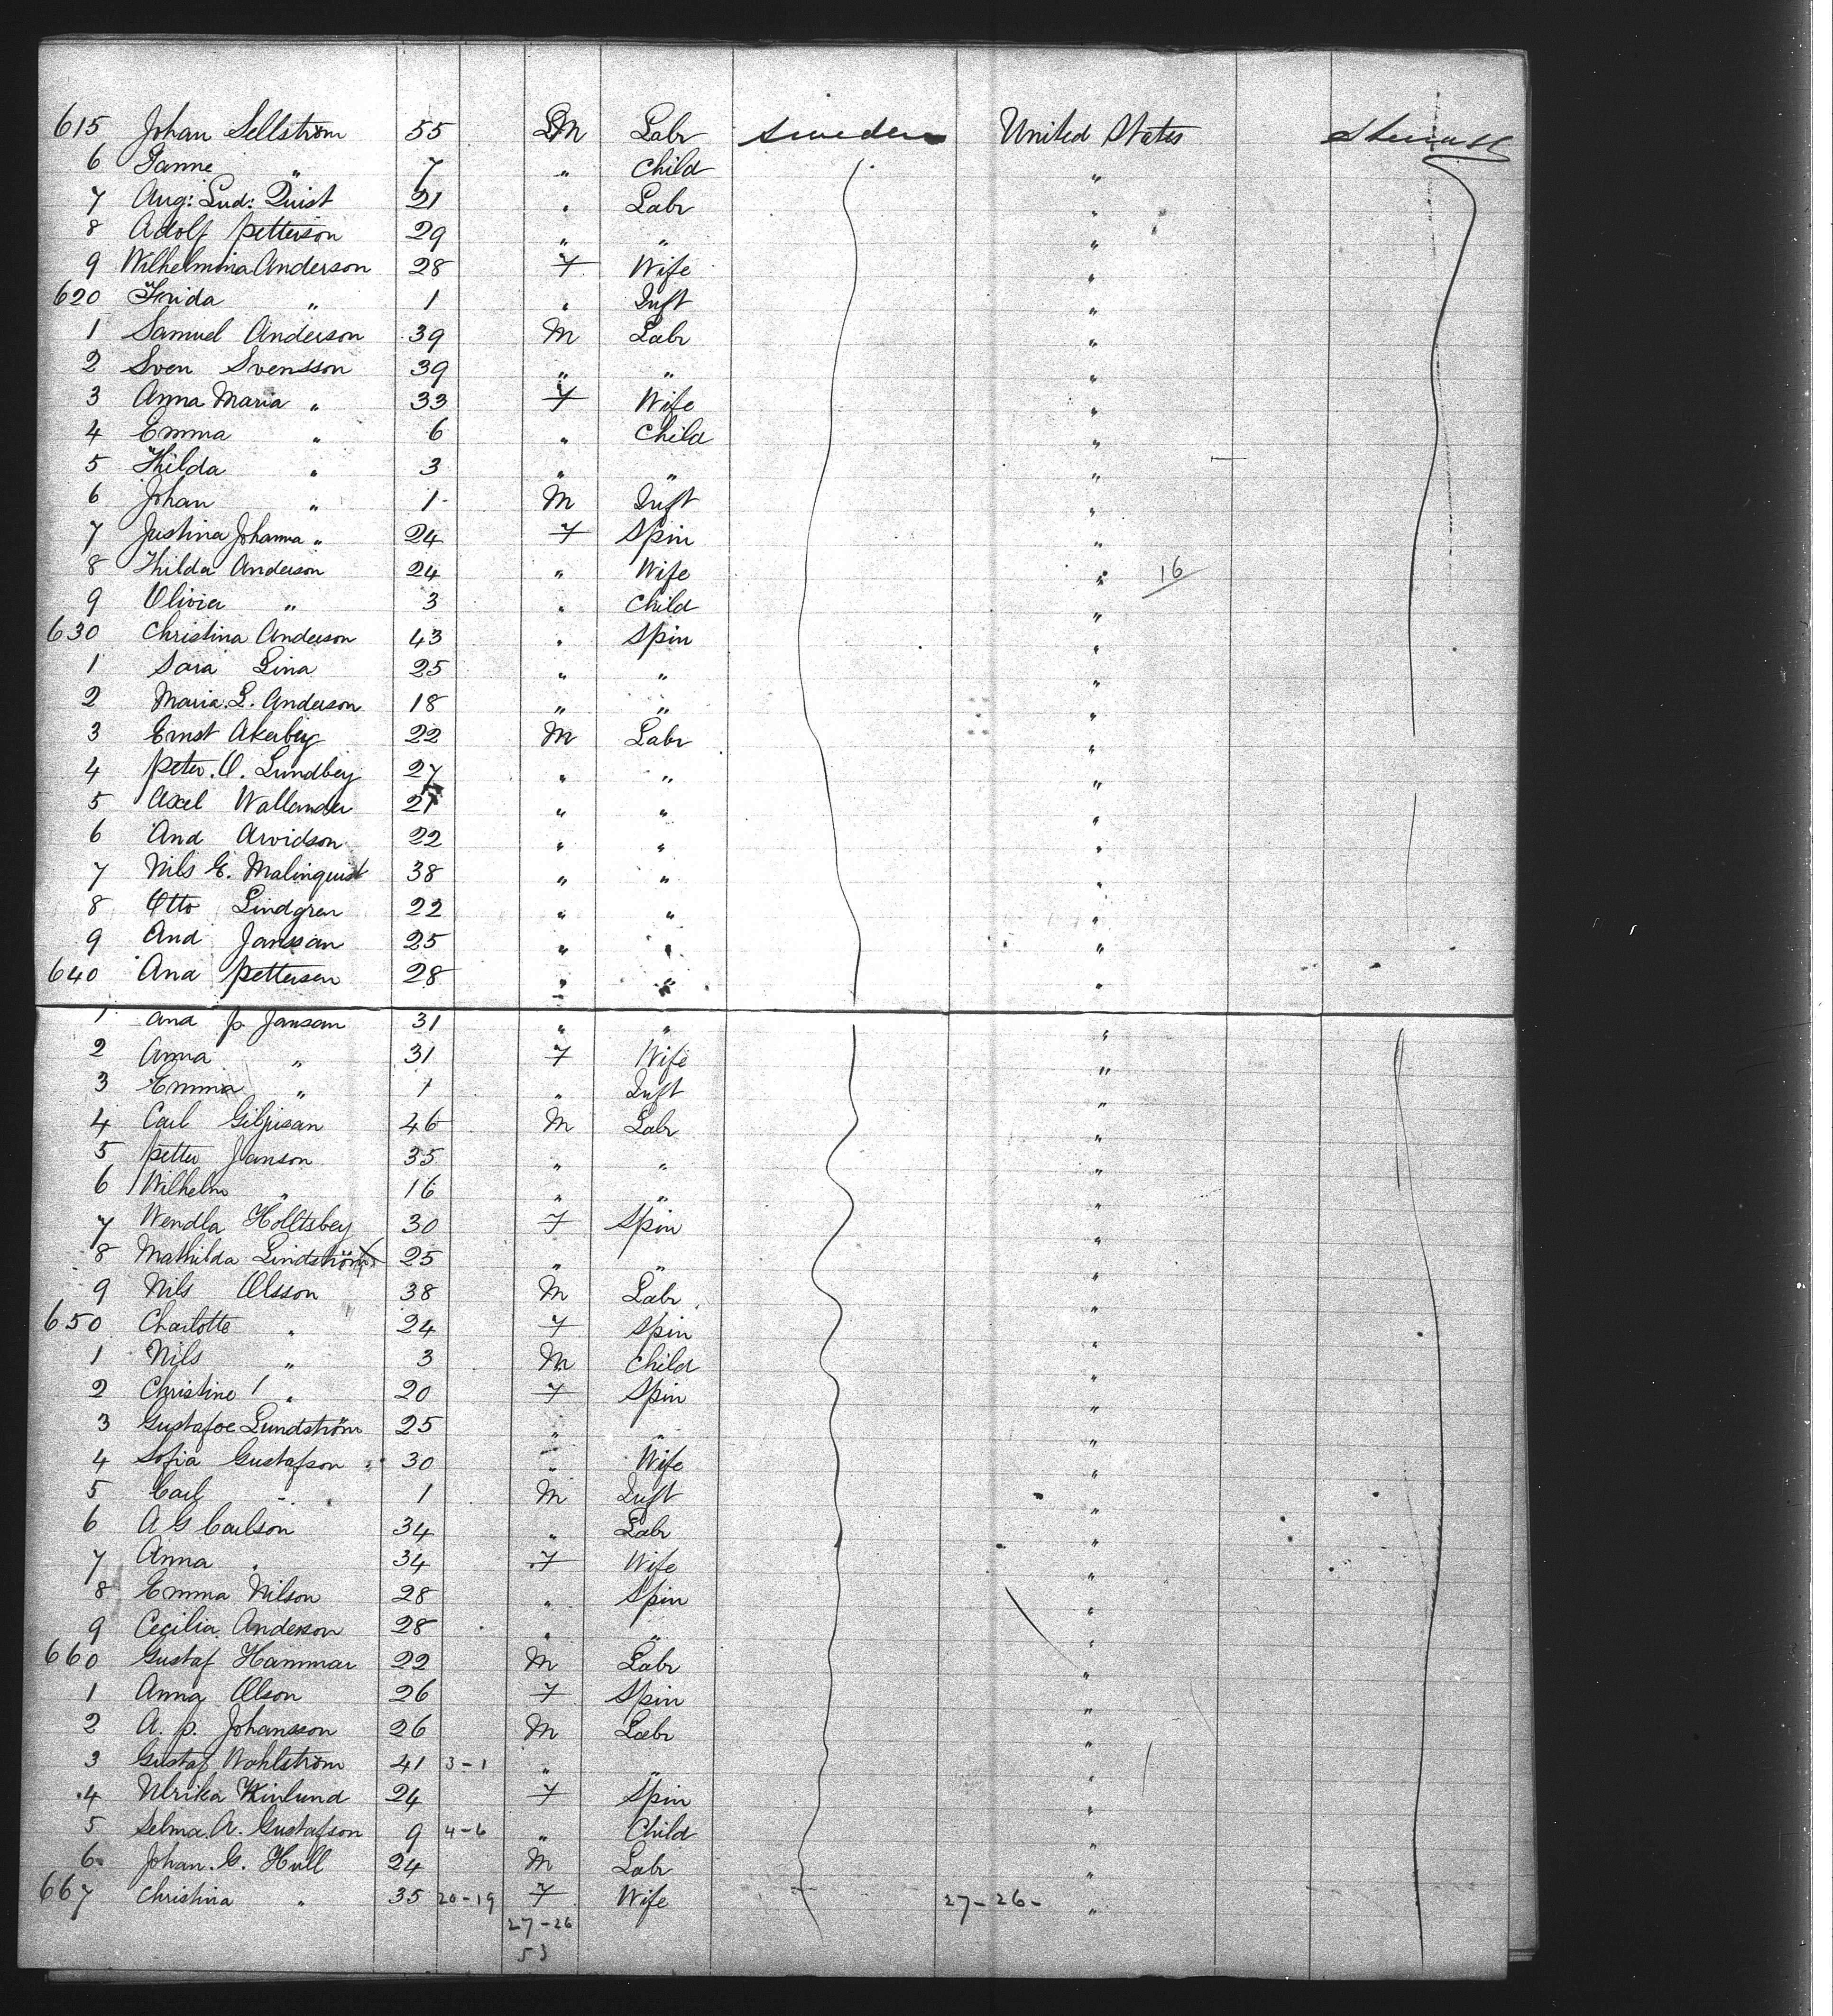 615 Johan Sellström 55 M Labr Sweden United States
6 Janne " 7 " Child "
7 Aug: Lud: Quist 21 " Labr "
8 Adolf Petterson 29 " " "
9 Wilhelmina Anderson 28 F Wife "
620 Frida " 1 " Inft "
1 Samuel Anderson 39 M Labr "
2 Sven Svensson 39 " " "
3 Anna Maria " 33 F Wife "
4 Emma " 6 " Child "
5 Hilda " 3 " " "
6 Johan " 1 M Inft "
7 Justina Johanna " 24 F Spin "
8 Hilda Anderson 24 " Wife " 16
9 Olivia " 3 " Child "
630 Christina Anderson 43 " Spin "
1 Sara Lina 25 " " "
2 Maria L. Anderson 18 " " "
3 Ernst Akerberg 22 M Labr "
4 Peter O. Lundberg 27 " " "
5 Axel Wallander 21 " " "
6 And Arvidson 22 " " "
7 Nils E. Malinquist 38 " " "
8 Otto Lindgren 22 " " "
9 And Janssan 25 " " "
640 And Pettersen 28 " " "
1 And P. Jansan 31 " " "
2 Anna " 31 F Wife "
3 Emma " 1 " Inft "
4 Carl 46 M Labr "
5 Petter Janson 35 " " "
6 Wilhelm " 16 " " "
7 Wendla Holltsberg 30 F Spin "
8 Mathilda Lindström 25 " " "
9 Nils Olsson 38 M Labr "
650 Charlotte " 24 F Spin "
1 Nils " 3 M Child "
2 Christine " 20 F Spin "
3 Gustafoe Lundström 25 " " "
4 Sofia Gustafson 30 " Wife "
5 Carl " 1 M Inft "
6 A G Carlson 34 " Labr "
7 Anna " 34 F Wife "
8 Emma Nilson 28 " Spin "
9 Cecilia Anderson 28 " " "
660 Gustaf Hammar 22 M Labr "
1 Anna Olson 26 F Spin "
2 A. P. Johansson 26 M Labr "
3 Gustaf Wahlström 41 3-1 " " "
4 Ulrika Winlund 24 F Spin "
5 Selma A. Gustafson 9 4-6 " Child "
6 Johan. G. Hull 24 M Labr "
667 Christina " 35 20-19 F Wife 27-26- "
27-26
53